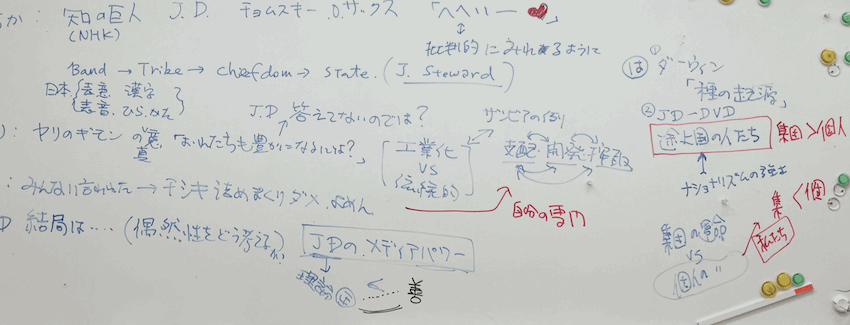 か: 知の巨人 J.D. チョムスキー O.サックス 「へへいー♥」
(NHK)
批判的にみれるように
Band → Tribe → chiefdom → state. (J. Steward)
日本 表意 漢字
表音. ひら.かな
J.D. 答えてないのでは?
ザンビアの
ヤリのギモン の 真 「おれたちも豊かになるには?」
工業化
VS
伝統的
支配 開発 搾取
: みんなに言われた → チシキ つめまくりダメ
自分の
結局は‥‥ (偶然性をどう考えるか)
JDの メディアパワー
理論
は
① ダーウィン
「種の起源」
② JD-DVD
途上国の人たち 集団>個人
ナショナリズムの
集<個
私たち
集団の運命
VS
個人の 〃